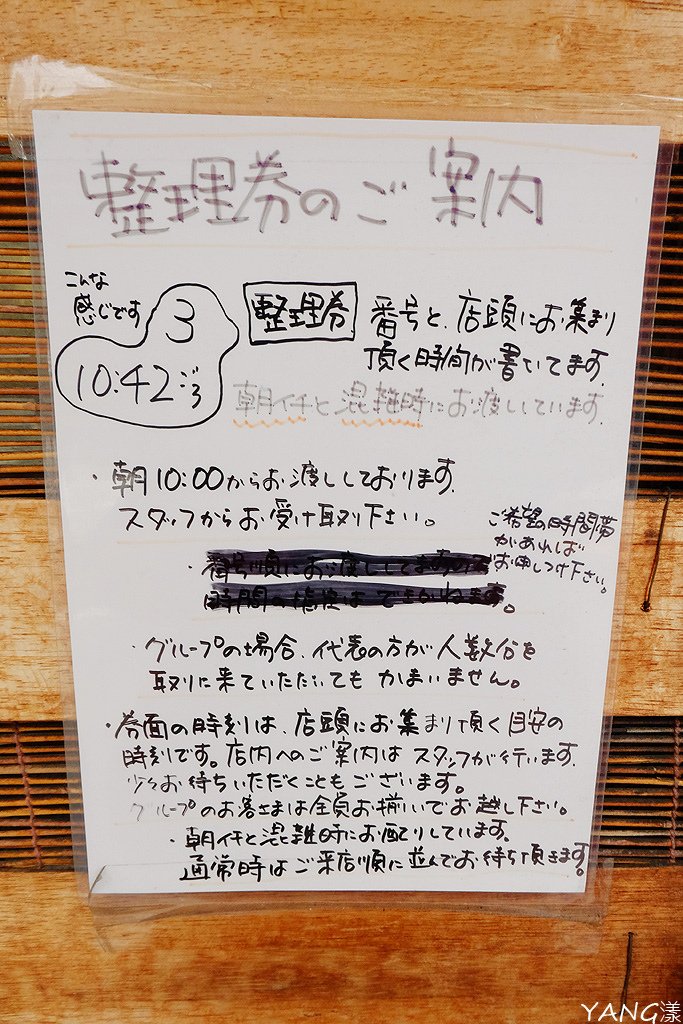 整理券のご案内
こんな
感じです
3
10:42ごろ
整理券 番号と、店頭にお集まり
頂く時間が書いてます。
朝イチと混雑時にお渡ししています。
・朝10:00からお渡ししております。
スタッフからお受け取り下さい。
ご希望の時間帯
があれば
お申しつけ下さい。
・番号順にお渡ししてますので
時間の指定はできかねます。
・グループの場合、代表の方が人数分を
取りに来ていただいてもかまいません。
・券面の時刻は、店頭にお集まり頂く目安の
時刻です。店内へのご案内はスタッフが行います。
少々お待ちいただくこともございます。
グループのお客さまは全員お揃いでお越し下さい。
・朝イチと混雑時にお配りしています。
通常時はご来店順に並んでお待ち頂きます。
YANG漾